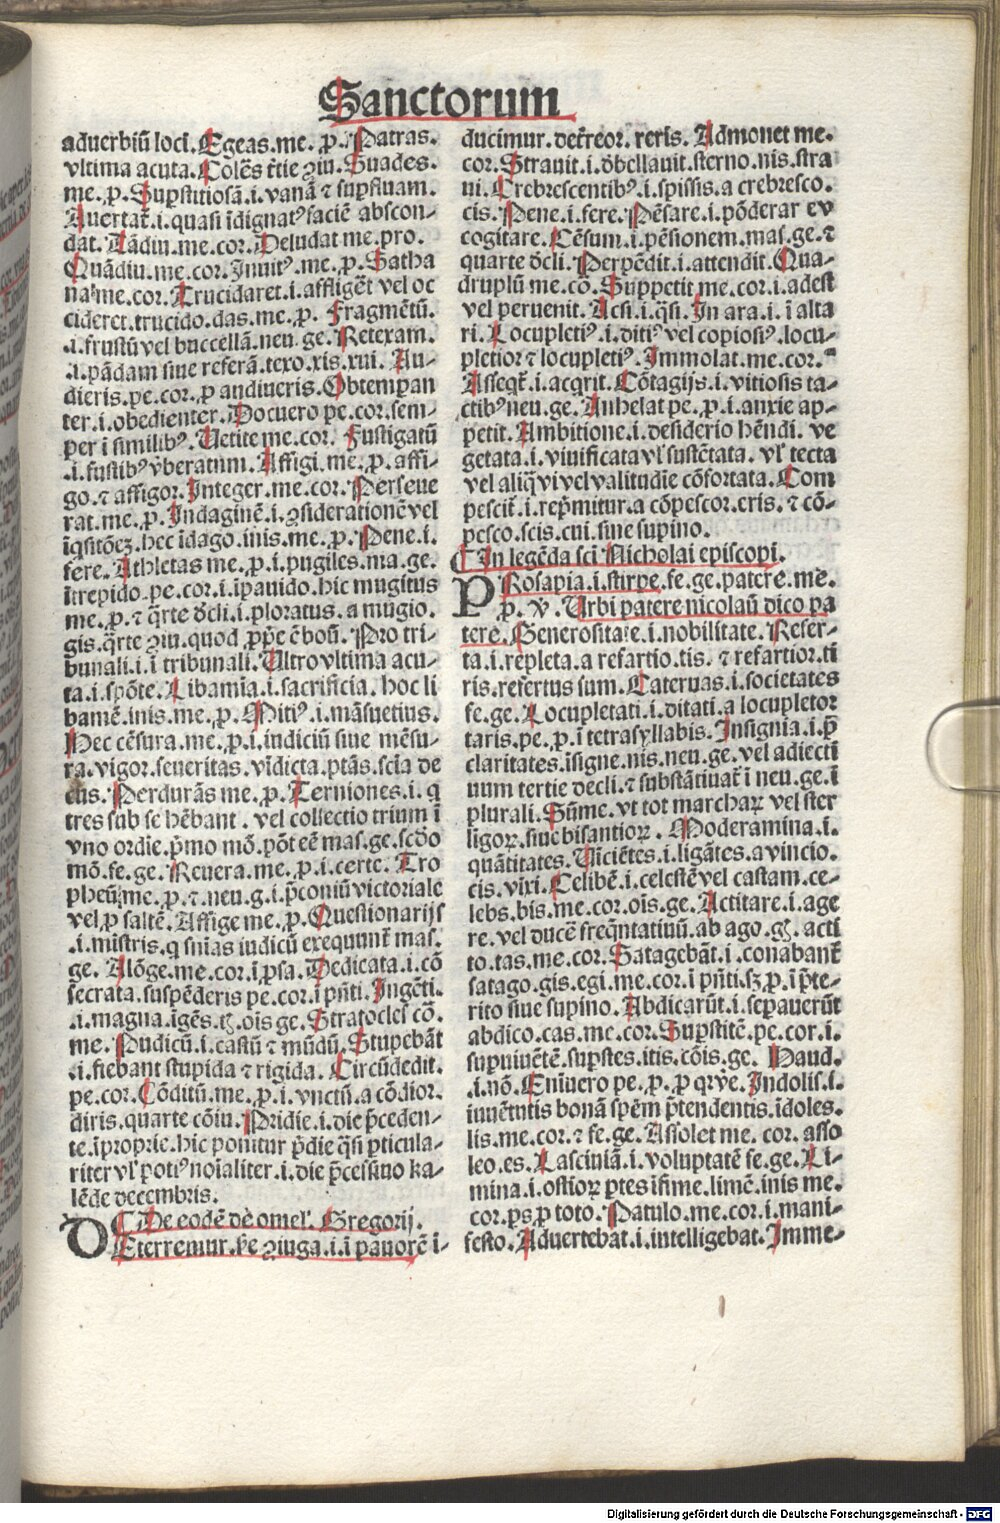 Sanctorum
aduerbiū loci. Egeas. me. ꝓ. Patras.
vltima acuta. Colēs t̄tie ꝯiu. Suades.
me. ꝓ. Suꝑstitiosā .i. vanā ⁊ suꝑfluam.
Auertat̄ .i. quasi īdignatꝰ faciē abscon-
dat. Tādiu. me. cor. Deludat me. pro.
Quādiu. me. cor. Inuitꝰ. me. ꝓ. Satha
nas me. cor. Trucidaret .i. affligēt vel oc
cideret. trucido. das. me. ꝓ. Fragmētū.
.i. frustū vel buccellā. neu. ge. Retexam.
.i. pādam siue referā. texo. xis. xui. Au-
dieris. pe. cor. ꝓ audiueris. Obtemꝑan
ter .i. obedienter. Docuero pe. cor. sem-
per ī similibꝰ. Uetite me. cor. Fustigatū
.i. fustibꝰ vberatum. Affigi. me. ꝓ. affi-
go. ⁊ affigor. Integer. me. cor. Perseue
rat. me. ꝓ. Indaginē .i. ꝯsiderationē vel
īqsitōeꝫ. hec īdago. inis. me. ꝓ. Pene .i.
fere. Athletas me. ꝓ. i. pugiles. ma. ge.
ītrepido. pe. cor. i. īpauido. hic mugitus
me. ꝓ. ⁊ q̄rte dcli. i. ploratus. a mugio.
gis. q̄rte ꝯiu. quod ꝓṗe ē boū. Pro tri-
bunali .i. ī tribunali. Ultro vltima acu-
ta .i. spōte. Libamīa .i. sacrificia. hoc li
bamē. inis. me. ꝓ. Mitiꝰ .i. māsuetius.
Nec cēsura. me. ꝓ. i. iudiciū siue mēsu-
ra. vigor. seueritas. vīdicta. ptās. scīa de
cus. Perdurās me. ꝓ. Terniones .i. q
tres sub se hēbant. vel collectio trium ī
vno ordīe. p̄mo mō. pōt eē mas. ge. scdo
mō. fe. ge. Reuera. me. ꝓ. i. certe. Tro
pheū. me. ꝓ. ⁊ neu. g. i. p̄coniū victoriale
vel ꝓ saltē. Affige me. ꝓ. Questionarijs
.i. mīstris. q snias iudicū exequunt̄ mas.
ge. Alōge. me. cor. ī ꝓsa. Dedicata .i. cō
secrata. suspēderis pe. cor. ī pn̄ti. Ingēti.
.i. magna. īgēs. tꝫ. oīs ge. Stratocles cō.
me. Pudicū .i. castū ⁊ mūdū. Stupebāt
.i. fiebant stupida ⁊ rigida. Circūdedit.
pe. cor. Cōditū. me. ꝓ. i. vnctū. a cōdior.
diris. quarte cōiu. Pridie .i. die p̄ceden-
te. īproprie. hic ponitur p̄die q̄si ꝑticula-
riter vl' potiꝰ noīaliter .i. die p̄cessiuo ka-
lēde decembris.
De eodē dē omel'. Gregorij.
DEterremur. p̄e ꝯiuga .i. ī pauorē i-
ducimur. det̄reor. reris. Admonet me.
cor. Strauit .i. d̄bellauit. sterno. nis. stra
ui. Crebrescentibꝰ .i. spissis. a crebresco.
cis. Pene .i. fere. Pēsare .i. pōderar ex
cogitare. Cēsum .i. pēsionem. mas. ge. ⁊
quarte dcli. Perpēdit .i. attendit. Qua-
druplū me. cō. Suppetit me. cor. i. adest
vel peruenit. Acsi .i. q̄si. In ara .i. ī alta
ri. Locupletiꝰ .i. ditiꝰ vel copiosiꝰ. locu-
pletior ⁊ locupletiꝰ. Immolat. me. cor.
Asseqt̄ .i. acqrit. Cōtagijs .i. vitiosis ta-
ctibꝰ neu. ge. Anhelat pe. ꝓ. i. anxie ap-
petit. Ambitione .i. desiderio hēndi. ve
getata .i. viuificata vl' sustētata. vl' tecta
vel aliq̄ vi vel valitudīe cōfortata. Com
pescit̄ .i. repͥmitur. a cōpescor. eris. ⁊ cō-
pesco. scis. cui. sine supino.
In legēda sci Nicholai episcopi.
PRosapia .i. stirpe. fe. ge. patere. mē.
ꝓ. v. Urbi patere nicolaū dico pa
tere. Generositate .i. nobilitate. Refer-
ta .i. repleta. a refartio. tis. ⁊ refartior. ti
ris. refertus sum. Cateruas .i. societates
fe. ge. Locupletati .i. ditati. a locupletor
taris. pe. ꝓ. ī tetrasyllabis. Insignia .i. p̄
claritates. īsigne. nis. neu. ge. vel adiecti
uum tertie decli. ⁊ substātiuat̄ ī neu. ge. ī
plurali. Sūme. vt tot marchaꝝ vel ster
ligoꝝ. siue bisantioꝝ. Moderamina .i.
quātitates. Uiciētes .i. ligātes. a vincio.
cis. vixi. Celibē .i. celestē vel castam. ce-
lebs. bis. me. cor. oīs. ge. Actitare .i. age
re. vel ducē freq̄ntatiuū. ab ago. gꝫ. acti
to. tas. me. cor. Satagebāt .i. conabant̄
satago. gis. egi. me. cor. ī pn̄ti. sꝫ ꝓ. ī p̄te-
rito siue supino. Abdicarūt .i. seꝑauerūt
abdico. cas. me. cor. Suꝑstitē. pe. cor. i.
suꝑuiuētē. suꝑstes. itis. cōis. ge. Haud.
.i. nō. Enīuero pe. ꝓ. ꝓ qrv̄e. Indolis .i.
iuuētutis bonā spēm p̄tendentis. īdoles.
lis. me. cor. ⁊ fe. ge. Assolet me. cor. asso
leo. es. Lasciuiā .i. voluptatē fe. ge. Li-
mina .i. ostioꝝ ꝑtes īfime. limē. inis me.
cor. ꝑs ꝓ toto. Patulo. me. cor. i. mani-
festo. Aduertebāt .i. intelligebat. Imme-
Digitalisierung gefördert durch die Deutsche Forschungsgemeinschaft - DFG